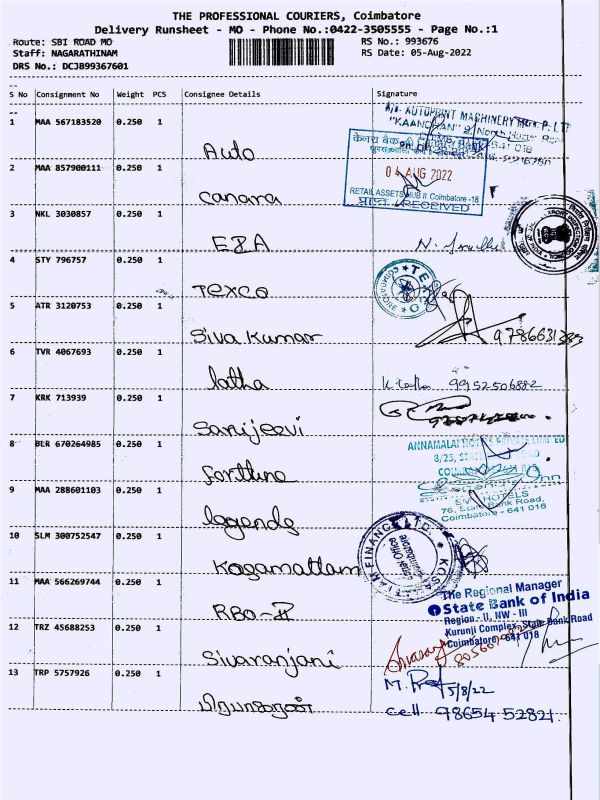 THE PROFESSIONAL COURIERS, Coimbatore
Delivery Runsheet - MO - Phone No.:0422-3505555 - Page No.:1
Route: SBI ROAD MO RS No.: 993676
Staff: NAGARATHINAM RS Date: 05-Aug-2022
DRS No.: DCJ899367601
S No Consignment No Weight PCS Consignee Details Signature
1 MAA 567183520 0.250 1 Auto
AUTOPRINT MACHINERY P. LTD
"KAANCHAN"
2 MAA 857900111 0.250 1 Canara
केनरा बैंक
04 AUG 2022
RETAIL ASSETS HUB II Coimbatore -18
प्राप्त / RECEIVED
3 NKL 3030857 0.250 1 EIA
4 STY 796757 0.250 1 Texco
TEXCO
COIMBATORE
5 ATR 3120753 0.250 1 Siva Kumar
6 TVR 4067693 0.250 1 latha
9952506882
7 KRK 713939 0.250 1 Sanjeevi
8 BLR 670264985 0.250 1 forttune
ANNAMALAI HOTELS PRIVATE LIMITED
8/25, STATE
9 MAA 288601103 0.250 1 legends
HOTELS
76, State Bank Road,
Coimbatore - 641 018
10 SLM 300752547 0.250 1 Kosamattam
KOSAMATTAM FINANCE LTD.
11 MAA 566269744 0.250 1 RBO-II
The Regional Manager
State Bank of India
Region - II, NW - III
Kurunji Complex, State Bank Road
Coimbatore - 641 018
12 TRZ 45688253 0.250 1 Sivaranjani
13 TRP 5757926 0.250 1 பிரபாகரன்
5/8/22
cell 98654 52821